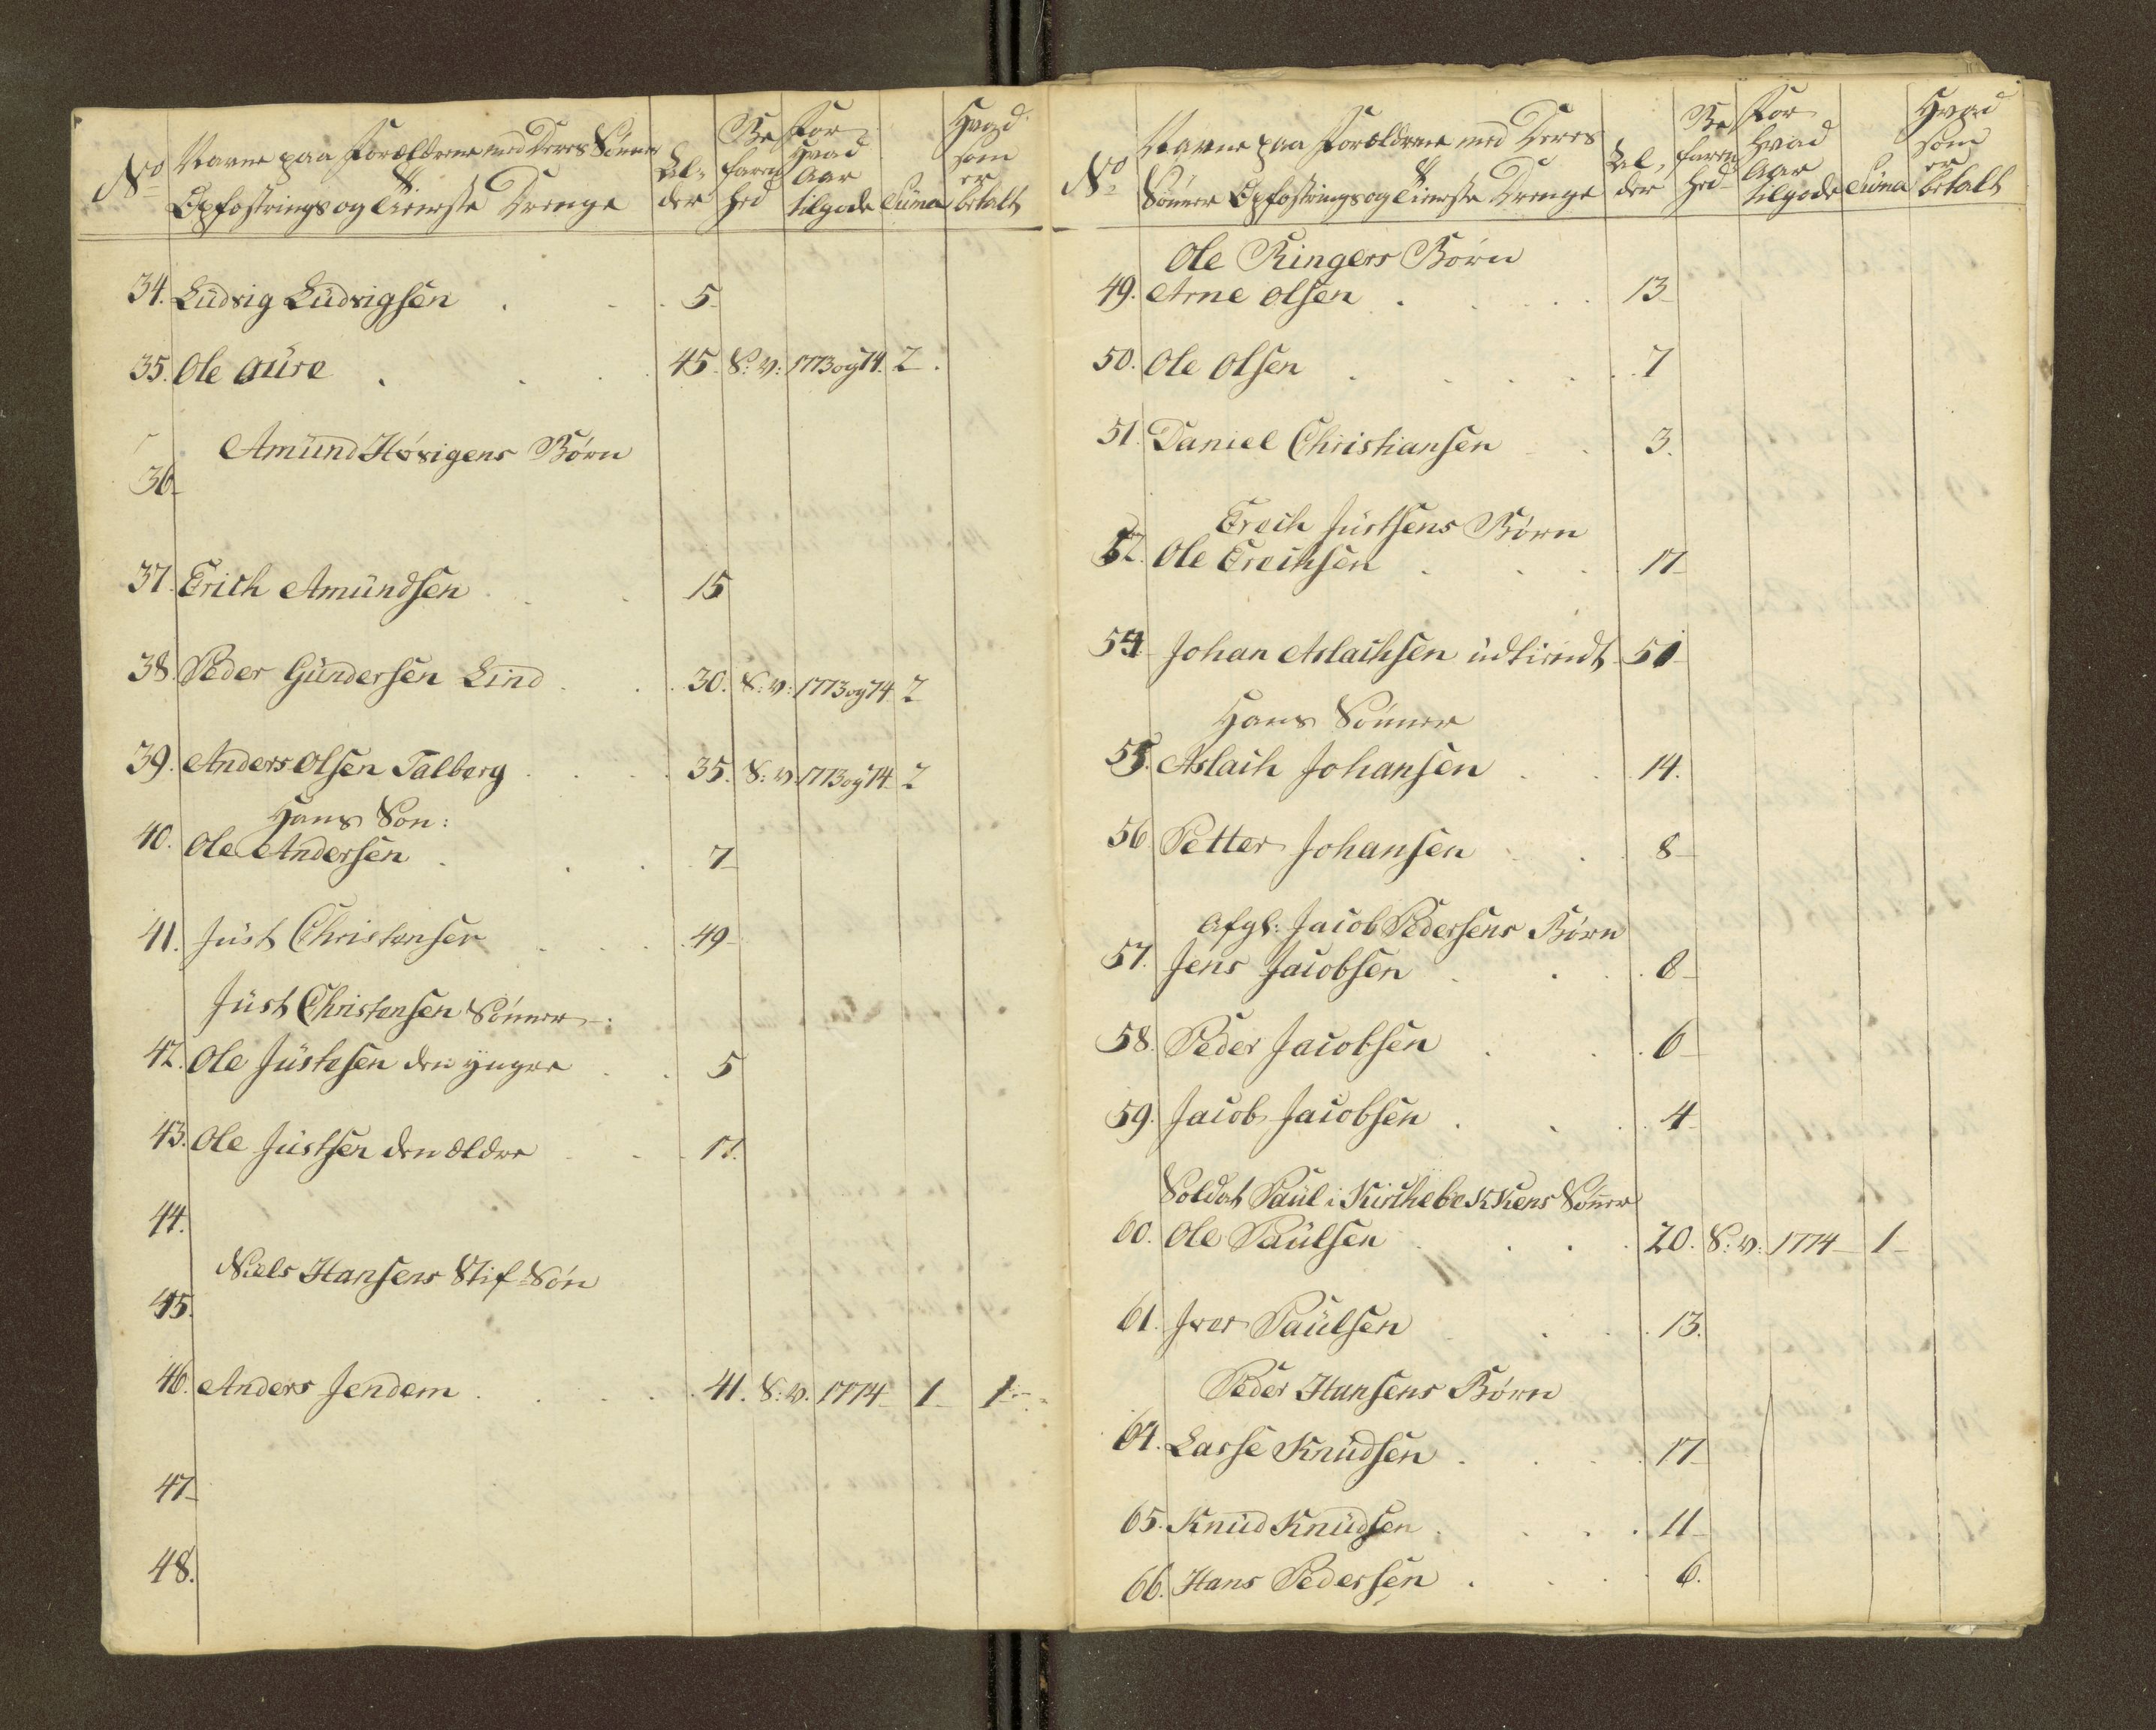 No Navne paa Forældrene med Deres Sønner Opfostrings og Tieneste Drenge Al- der Be faren hed For Hvad Aar tilgode Suma Hvad som er betalt
34. Ludvig Ludvigsen 5
35. Ole Aure 45. S: v: 1773 og 74. 2.
Amund Høvigens Børn
36
37. Erich Amundsen 15
38. Peder Gundersen Lind 30. S: v: 1773 og 74 2
39. Anders Olsen Talberg 35. S: v: 1773 og 74 2
Hans Søn:
40. Ole Andersen 7
41. Just Christensen 49
Just Christensen Sønner
42. Ole Justesen den yngre 5
43. Ole Justsen den ældre 17.
44.
Niels Hansens Stif Søn
45.
46. Anders Jendem 41. S: v. 1774 1 1
47
48.
No Navne paa Forældrene med Deres Sønner Opfostrings og Tieneste Drenge Al- der Be faren hed For Hvad Aar tilgode Suma Hvad som er betalt
Ole Ringers Børn
49. Arne Olsen 13
50. Ole Olsen 7
51. Daniel Christiansen 3.
Erich Justsens Børn
52. Ole Erichsen 17
54 Johan Aslachsen udtient 51
Hans Sønner
55. Aslach Johansen 14.
56 Petter Johansen 8
Afgl: Jacob Pedersens Børn
57. Jens Jacobsen 8
58. Peder Jacobsen 6
59. Jacob Jacobsen 4
Soldat Paul i Kirchebekkens Sønner
60. Ole Paulsen 20. S: v: 1774 1
61. Iver Paulsen 13.
Peder Hansens Børn
64. Lasse Knudsen 17
65. Knud Knudsen 11
66. Hans Pedersen 6.